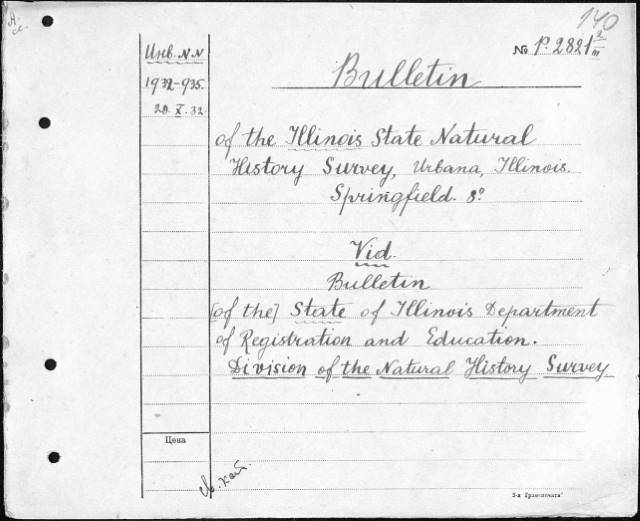 140
№ P. 2821 2/III
Инв. N.N
1932-935.
20. X. 32.
Bulletin
of the Illinois State Natural
History Survey, Urbana, Illinois.
Springfield. 8º
Vid.
Bulletin
[of the] State of Illinois Department
of Registration and Education.
Division of the Natural History Survey
Цена
св. кат.